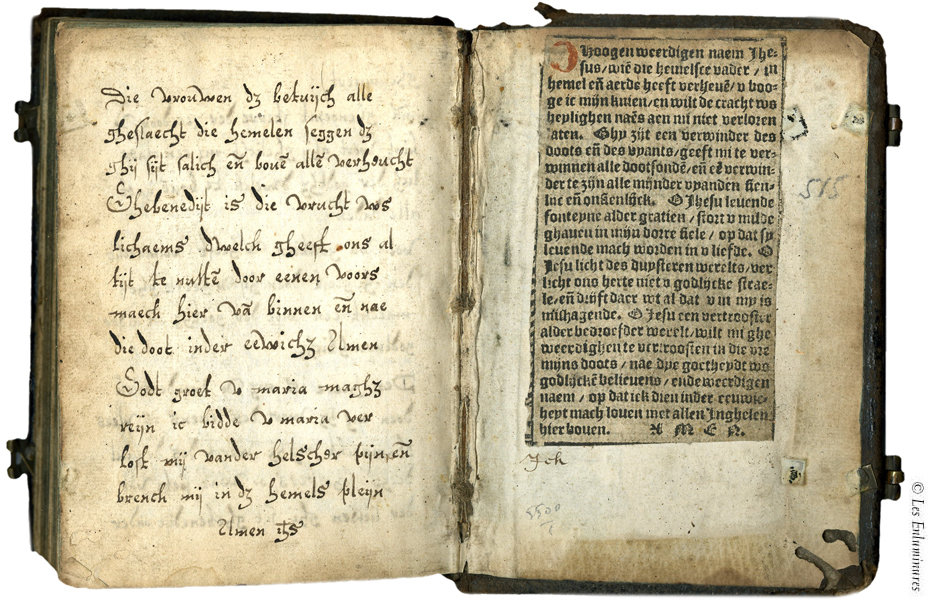 Die vrouwen dz betuijch alle
gheslaecht die hemelen seggen dz
ghij sijt salich en̄ bouē allē verheucht
Ghebenedijt is die vrucht ws
lichaems dwelch gheeft ons al
tijt te nuttē door eenen voors
maeck hier vā binnen en̄ nae
die doot inder eewichz Amen
Godt groet v maria maghz
reijn ic bidde v maria ver
lost mij vander helscher pijn, en̄
brench mij in dz hemels pleijn
Amen ihs
Hoogen weerdigen naem Jhe-
sus/wiē die hemelsce vader/in
hemel en̄ aerde heeft verheuē/v boo-
ge ic mijn knien/en wilt de cracht ws
heylighen naēs aen mi niet verloren
laten. Ghy zijt een verwinder des
doots en̄ des vyants/geeft mi te ver-
winnen alle dootsondē/en̄ eē verwin-
der te zijn alle mijnder vyanden sien-
luc en̄ onsienlijck. O Jhesu leuende
fonteyne alder gratien/stort v milde
ghauen in mijn dorre siele/op dat sy
leuende mach worden in v liefde. O
Jesu licht des duysteren werelts/ver
licht ons herte met v godlijcke strae-
le/en̄ drijft daer wt al dat v in my is
mishagende. O Jesu een vertrooster
alder bedroefder werelt/wilt mi ghe
weerdighen te vertroosten in die vre
mijns doots/nae dye goetheydt ws
godlijckē belieuens/ende weerdigen
naem/op dat ick dien inder eeuwic-
heyt mach louen met allen Inghelen
hier bouen. A M E N.
Ick
5500
515
© Les Enluminures